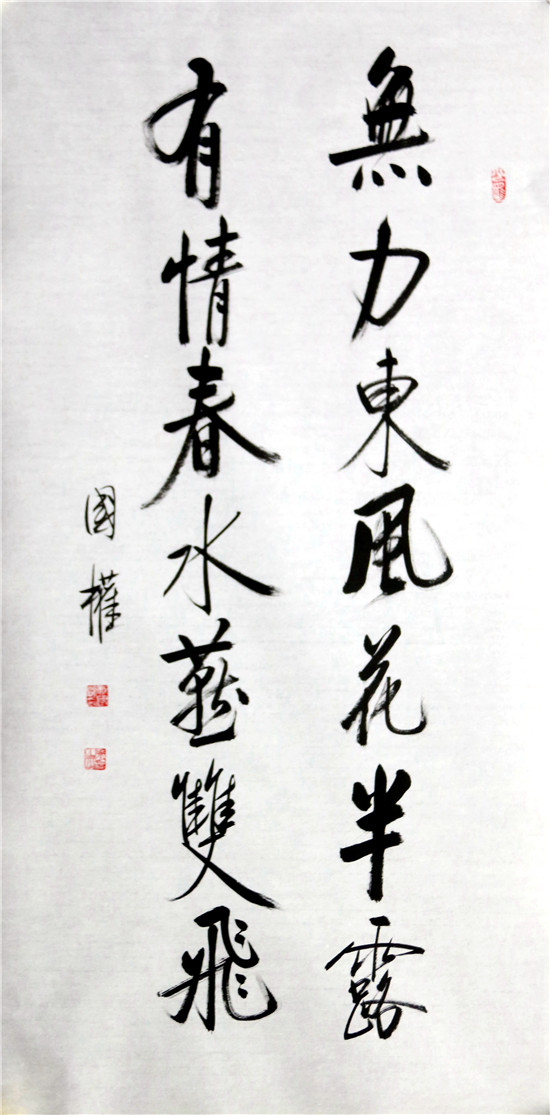 無力東風花半露
有情春水燕雙飛
國權